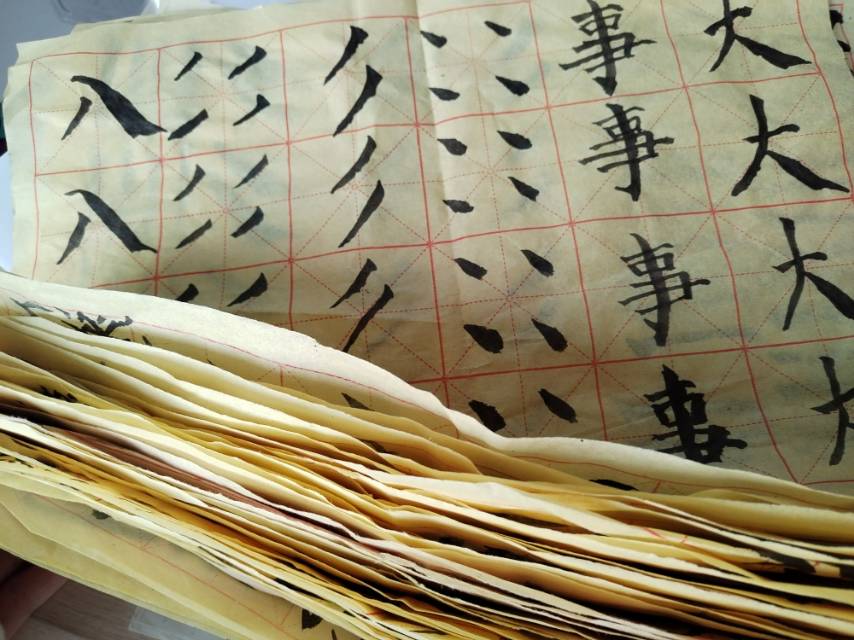 大大大大
事事事事
八八